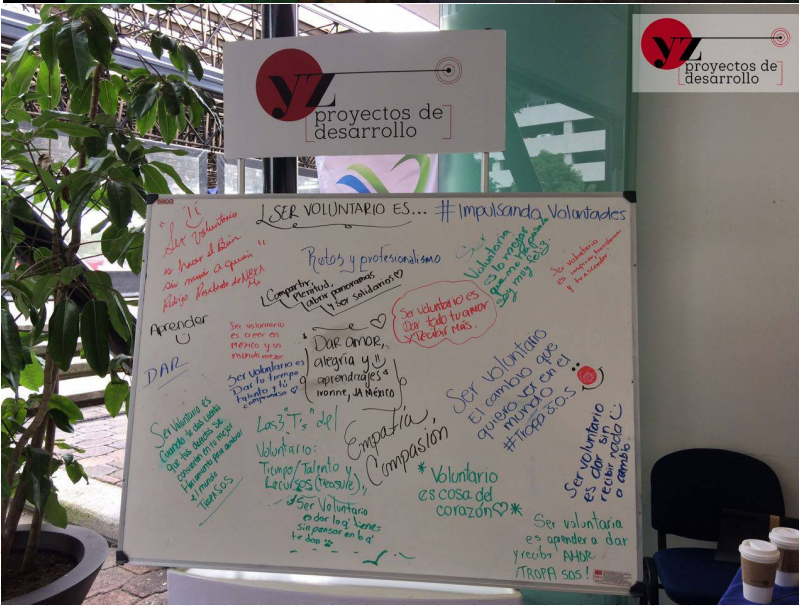 yz
proyectos de
desarrollo
yz
proyectos de
desarrollo
¿SER VOLUNTARIO ES...
#Impulsando Voluntades
"Ser Voluntario
es hacer el Bien
sin mirar a quien"
Rodrigo Presidente de
Retos y profesionalismo
Ser
Voluntaria
es lo mejor
que me ha pasado
soy muy feliz.
Ser voluntario
es inspirar, transformar
y trascender
Compartir,
plenitud,
abrir panoramas
y ser solidarios
Ser voluntario es
Dar todo tu amor
y Recibir más.
Aprender
DAR
Ser voluntario
es creer en
México y un
mundo mejor
Ser Voluntario es
Dar tu tiempo
talento y tú
compromiso
Dar amor,
alegria y
aprendizajes
Ivonne, JA México
Ser voluntario
El cambio que
quiero ver en el
mundo
#TROPA S.O.S
Ser Voluntario es
Cuando te das cuenta
que tus
convierten en tu mejor
Herramienta para cambiar
el mundo
TROPA SOS
Las 3 "T's" del
Voluntario:
Tiempo/Talento y
Recursos (treasure),
Empatía
Compasión
Ser voluntario
es dar sin
recibir nada
a cambio
*Voluntario
es cosa del
corazón*
Ser Voluntario
es dar lo q' tienes
sin pensar en lo q'
te dan
Ser voluntaria
es aprender a dar
y recibir AMOR.
¡TROPA SOS!